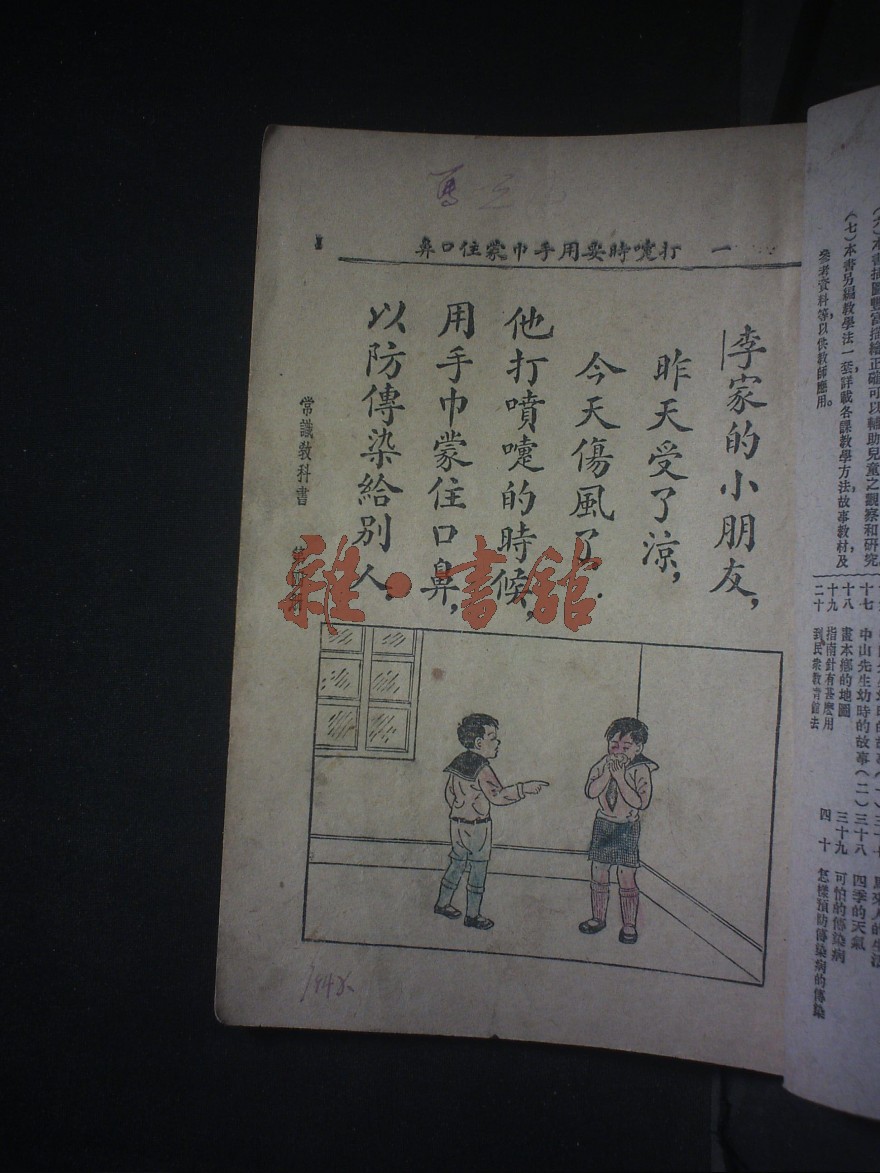 一 打嚏時要用手巾蒙住口鼻
李家的小朋友，
昨天受了涼，
今天傷風了．
他打噴嚏的時候，
用手巾蒙住口鼻，
以防傳染給別人．
常識教科書
雜·書館
本書插圖豐富描繪正確可以輔助兒童之觀察和研究
（七）本書另編教學法一套，詳載各課教學方法，故事教材及
參考資料等，以供教師應用。
十七
十八
十九
二十
中山先生幼時的故事（二）
畫本鄉的地圖
指南針有甚麼用
到民衆教育館去
三十八
三十九
四十
四季的天氣
可怕的傳染病
怎樣預防傳染病的傳染